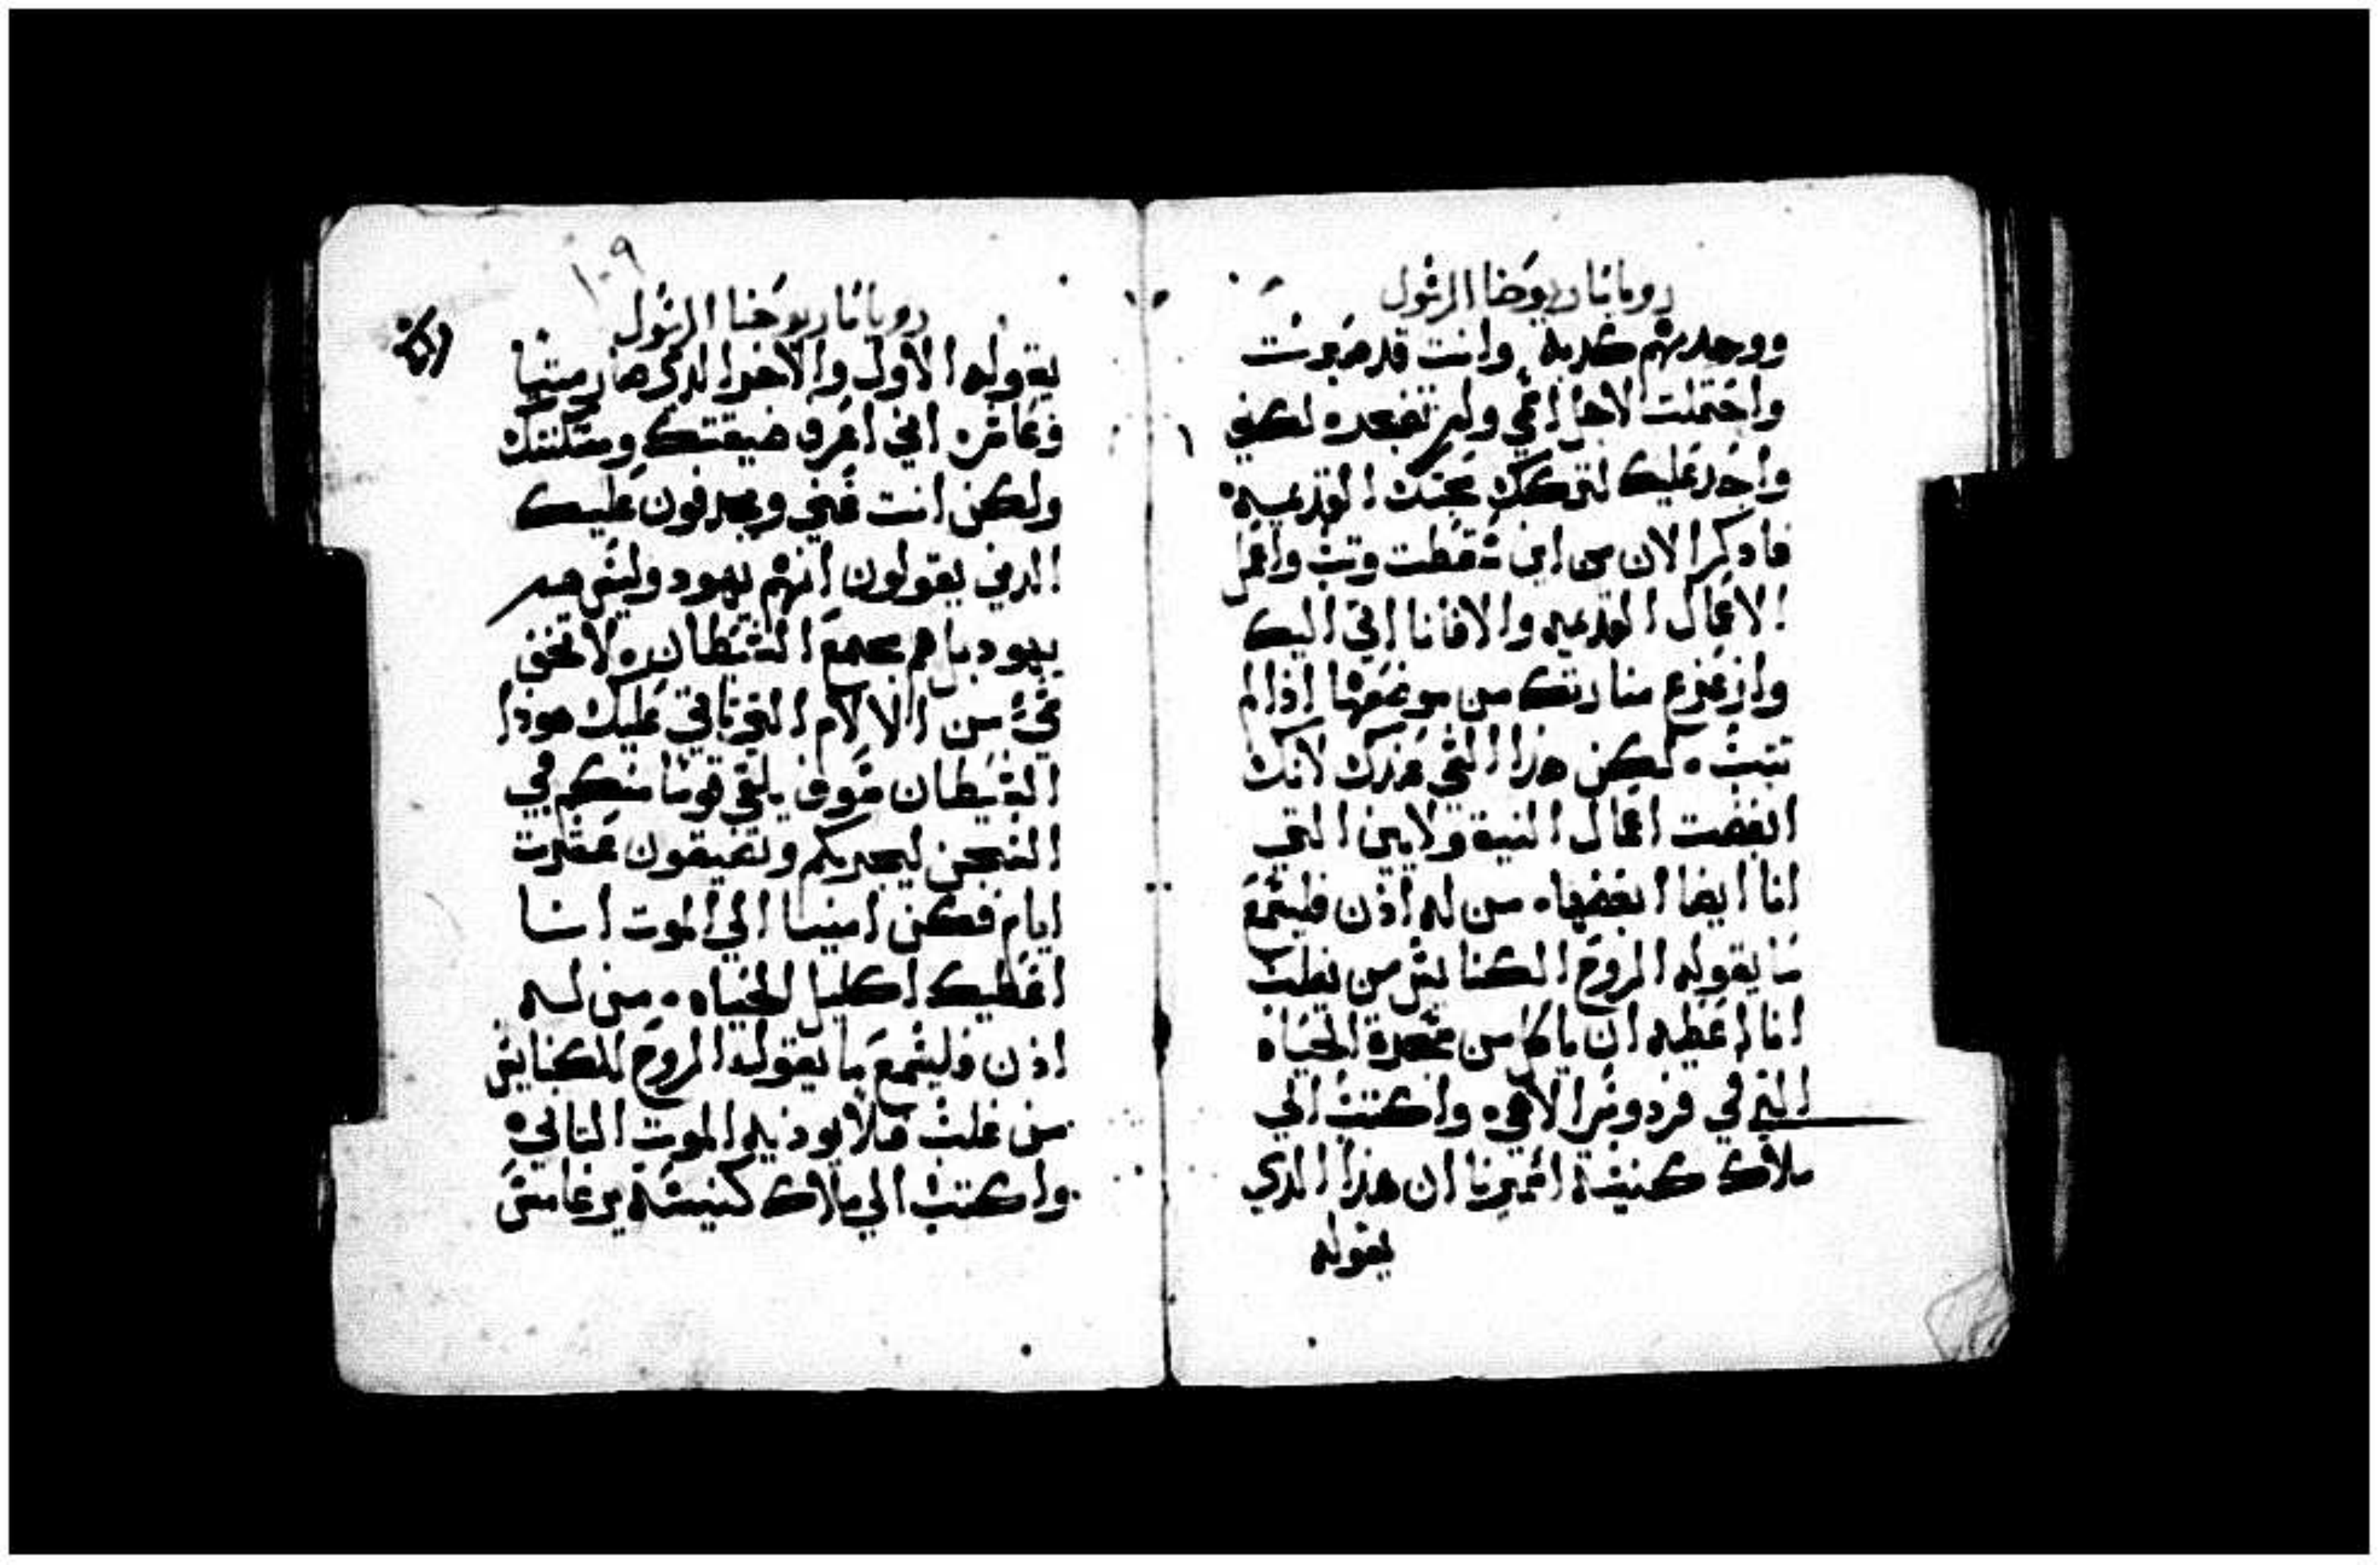 رويا مار يوحنا الرسول
ووجدتهم كدبه، وانت قد صبرت
واحتملت لاجل اسمي ولم تضجره لكني
واجد عليك لتركك محبتك القديمه
فادكر الان من اين سقطت وتب واعمل
الاعمال القديمه والا فانا اتي اليك
وازعزع منارتك من موضعها اذا لم
تتب. لكن هذا الشي عندك لانك
ابغضت اعمال النيقولايين التي
انا ايضا ابغضها. من له اذن فليسمع
ما يقوله الروح الكنايس من يغلب
انا اعطيه ان ياكل من شجرة الحياه
التي في فردوس الاهي. واكتب الي
ملاك كنيسة ازميرنا ان هذا الدي
يقوله
١٠٩
رويا مار يوحنا الرسول
يقوله الاول والاخر الدي صار ميتا
وعاش. اني اعرف ضيقتك ومسكنتك
ولكن انت غني ويجدفون عليك
الدين يقولون انهم يهود وليس هم
يهود بل هم مجمع الشيطان. لا تخف
شي من الالام التي تاتي عليك هودا
الشيطان سوف يلقي قوما منكم في
السجن ليجربكم وتضيقون عشرت
ايام فكن امينا الي الموت انا
اعطيك اكليل الحياه. من له
اذن فليسمع ما يقوله الروح للكنايس
من غلب فلا يوذيه الموت التاني.
واكتب الي ملاك كنيسة برغامس